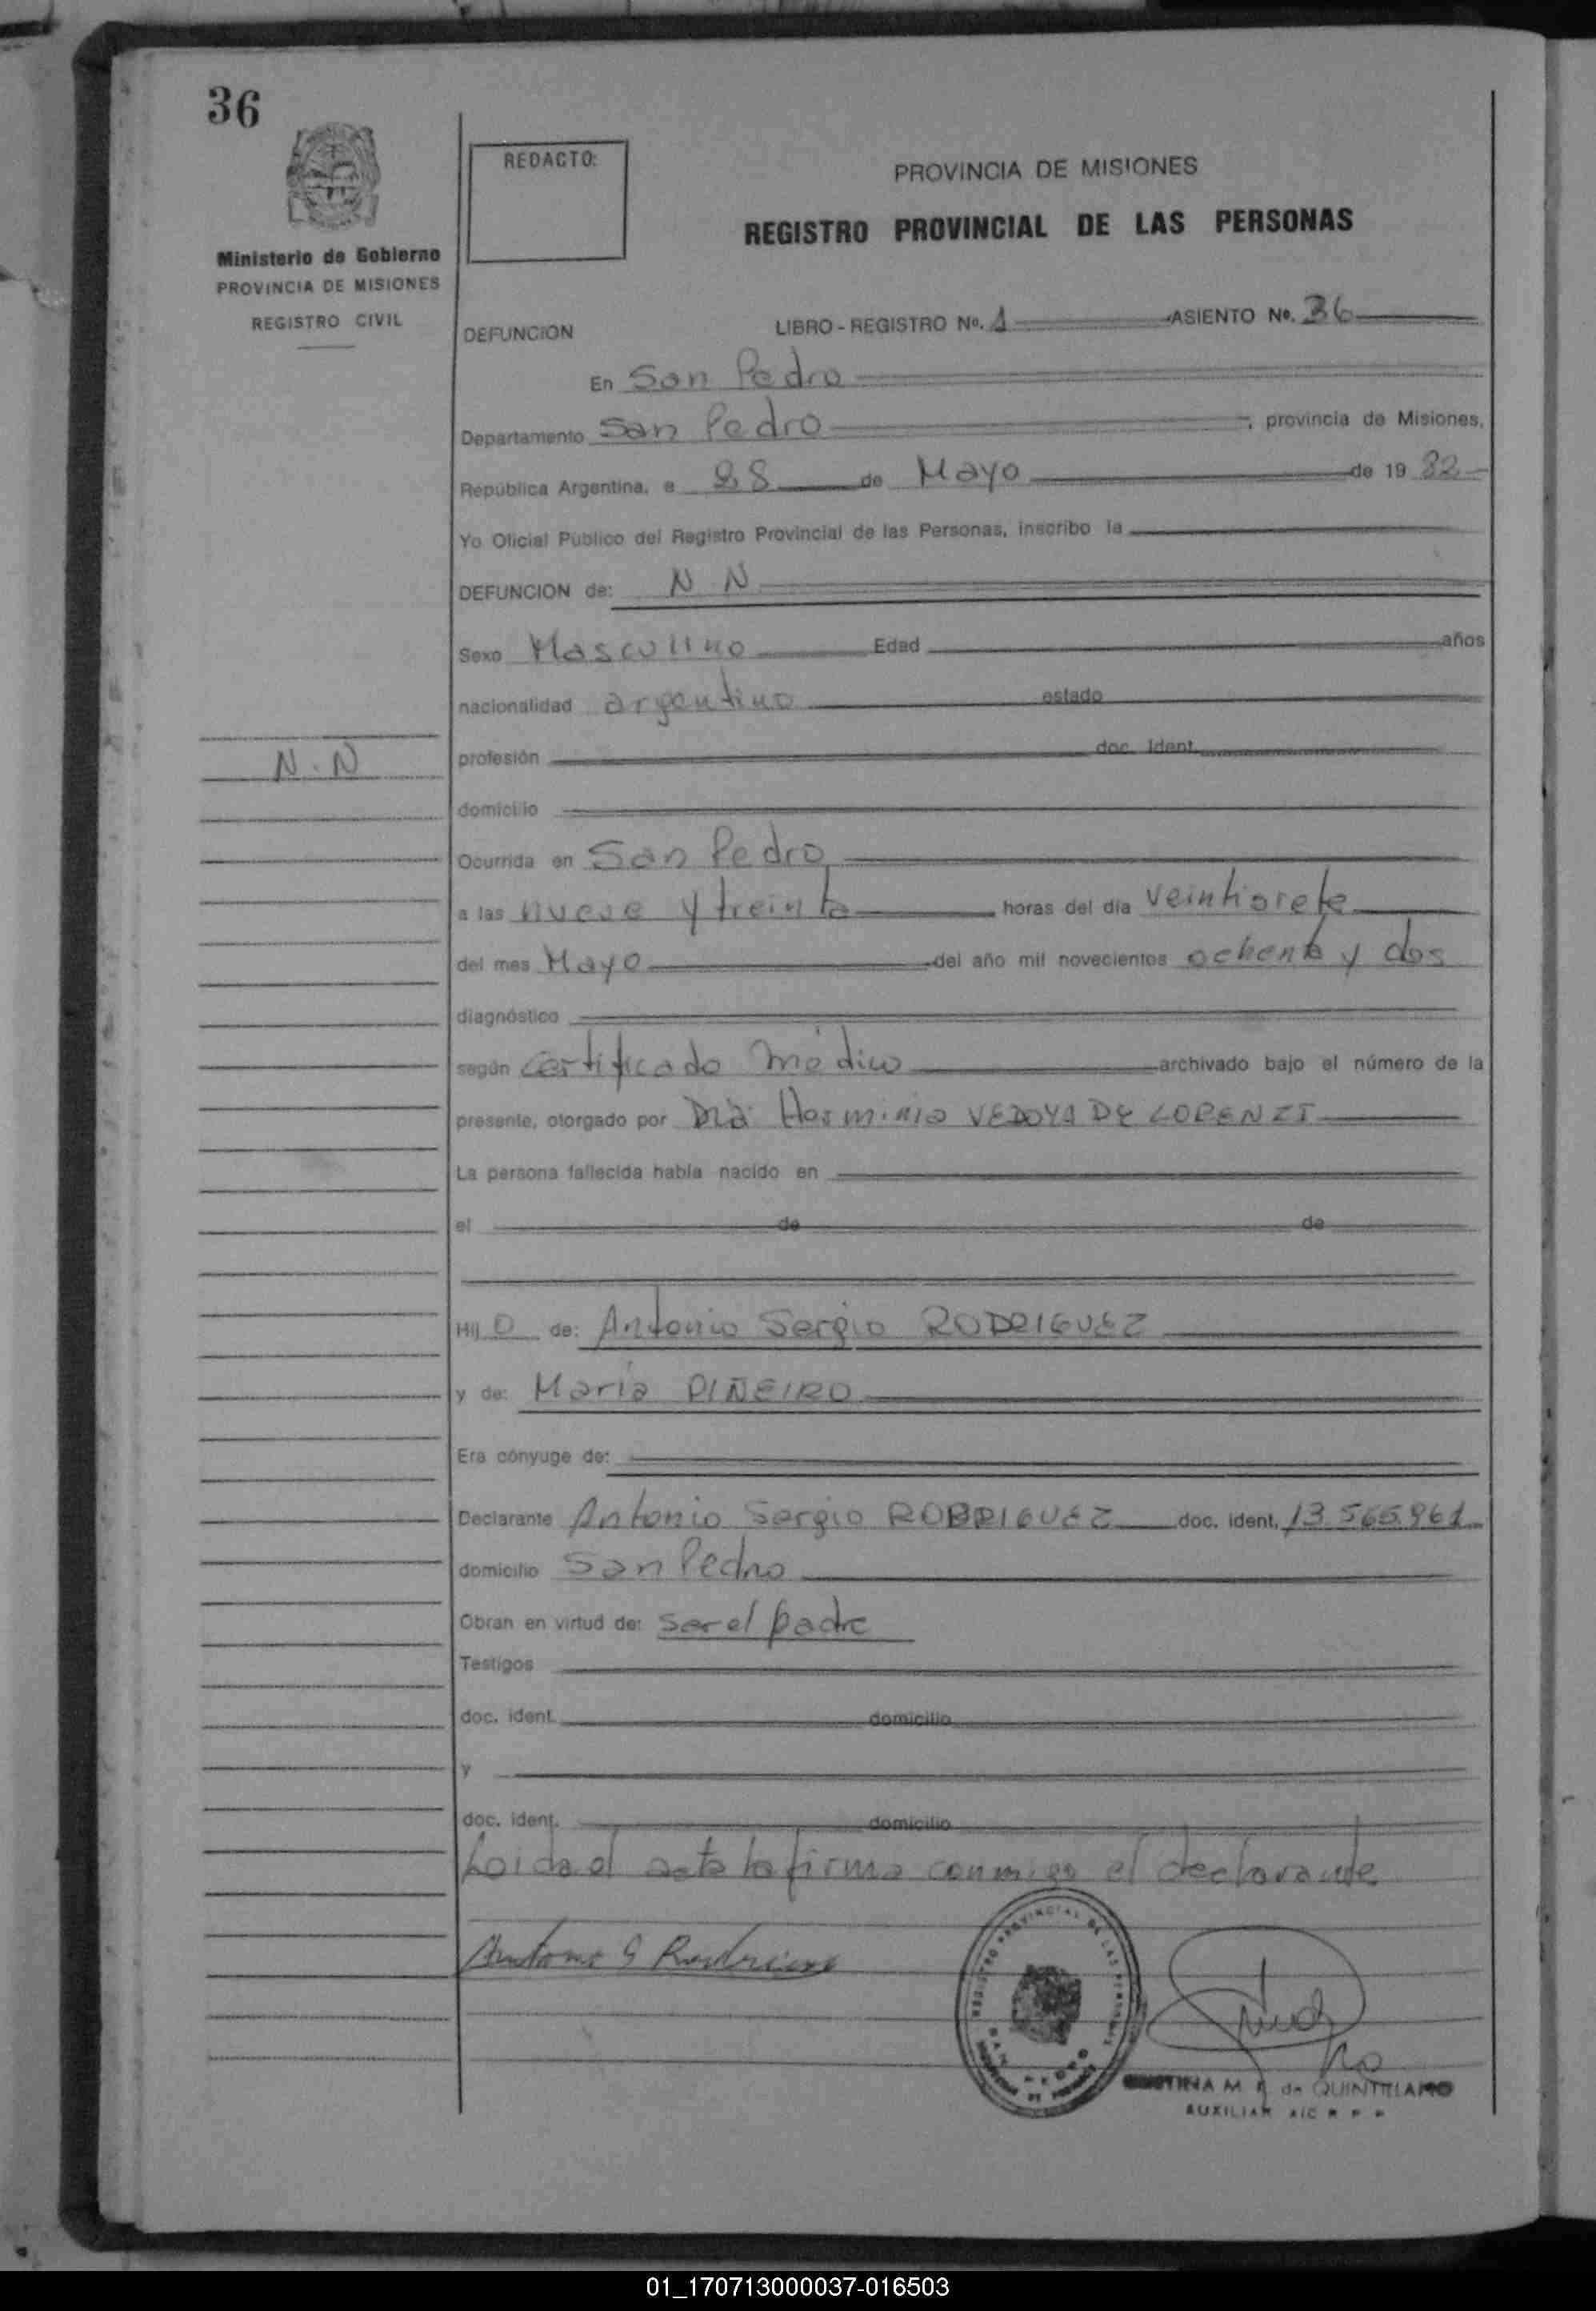 36
REDACTO:
PROVINCIA DE MISIONES
REGISTRO PROVINCIAL DE LAS PERSONAS
Ministerio de Gobierno
PROVINCIA DE MISIONES
REGISTRO CIVIL
DEFUNCION LIBRO - REGISTRO Nº. 1 ASIENTO Nº. 36
En San Pedro
Departamento San Pedro, provincia de Misiones,
República Argentina, a 28 de Mayo de 19 82
Yo Oficial Público del Registro Provincial de las Personas, inscribo la
DEFUNCION de: N.N
Sexo Masculino Edad años
nacionalidad argentino estado
N.N
profesión doc. Ident.
domicilio
Ocurrida en San Pedro
a las nueve y treinta horas del día veintisiete
del mes Mayo del año mil novecientos ochenta y dos
diagnóstico
según Certificado médico archivado bajo el número de la
presente, otorgado por Dra. Herminia VEDOYA DE LORENZI
La persona fallecida había nacido en
el de de
Hij o de: Antonio Sergio RODRIGUEZ
y de: Maria PIÑEIRO
Era cónyuge de:
Declarante Antonio Sergio RODRIGUEZ doc. ident. 13.565.961
domicilio San Pedro
Obran en virtud de: ser el padre
Testigos
doc. ident. domicilio
y
doc. ident. domicilio
Leida el acta la firma conmigo el declarante
Antonio S Rodriguez
REGISTRO PROVINCIAL DE LAS PERSONAS
SAN PEDRO
M. de QUINTELIANO
AUXILIAR
01_170713000037-016503